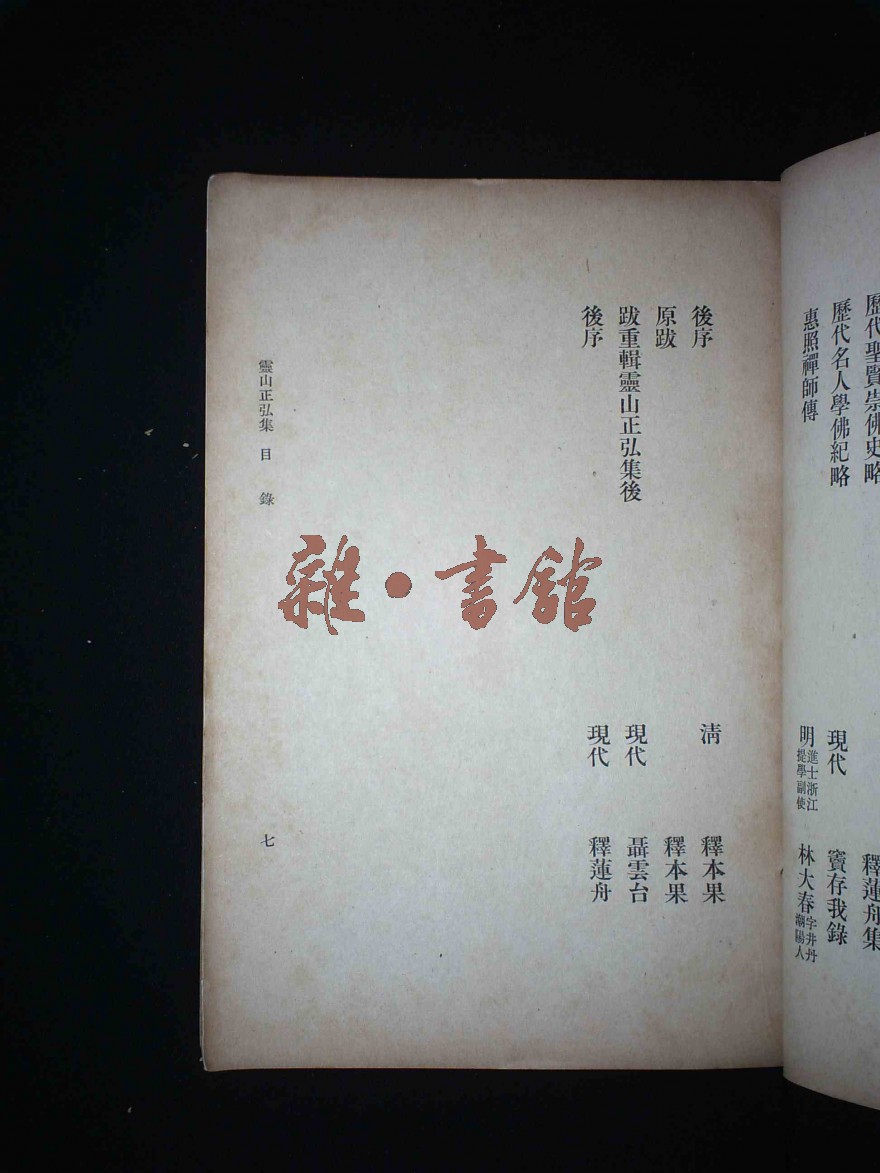 歷代聖賢崇佛史略　釋蓮舟集
歷代名人學佛紀略　現代　竇存我錄
惠照禪師傳　明進士浙江提學副使　林大春字井丹潮陽人
後序　清　釋本果
原跋　釋本果
跋重輯靈山正弘集後　現代　聶雲台
後序　現代　釋蓮舟
靈山正弘集　目　錄　七
雜・書館